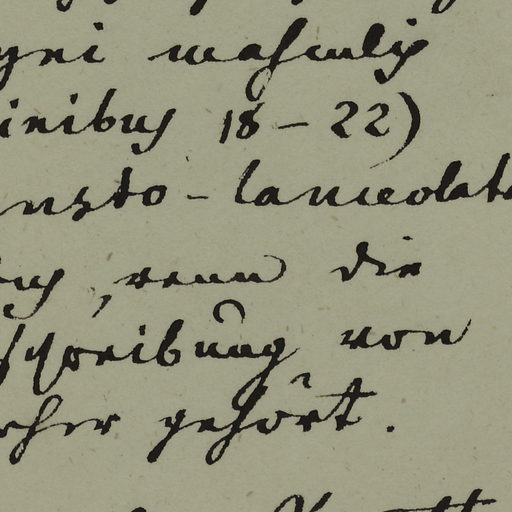 gni masculis
inibus 18 – 22)
lanceolat
, wenn die
schreibung von
gehört.